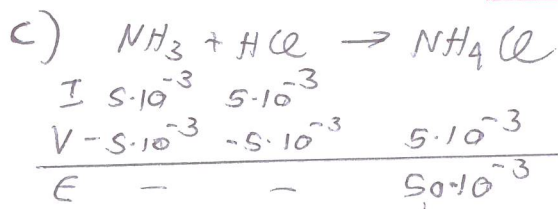 c) NH₃ + HCl → NH₄Cl
I 5·10⁻³ 5·10⁻³
V -5·10⁻³ -5·10⁻³ 5·10⁻³
E - - 50·10⁻³